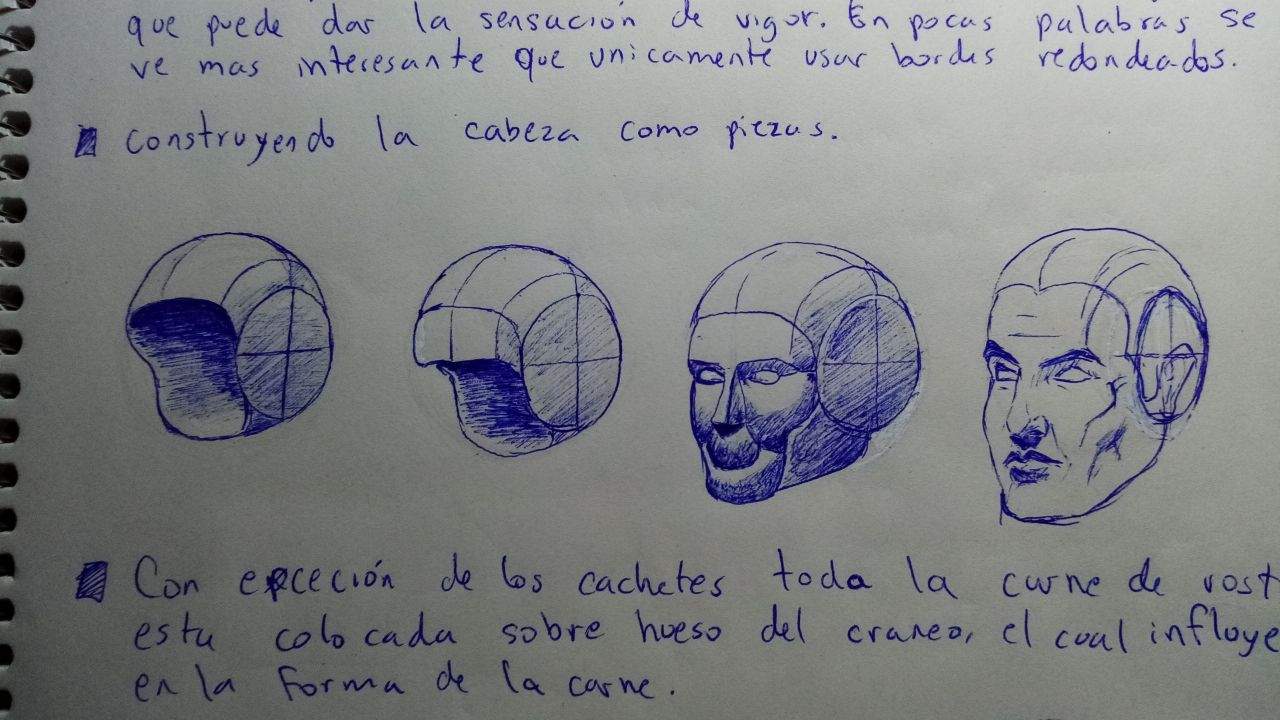 que puede dar la sensación de vigor. En pocas palabras se
ve mas interesante que unicamente usar bordes redondeados.
Construyendo la cabeza como piezas.
Con excección de los cachetes toda la carne de rost
esta colocada sobre hueso del craneo, el cual influye
en la forma de la carne.